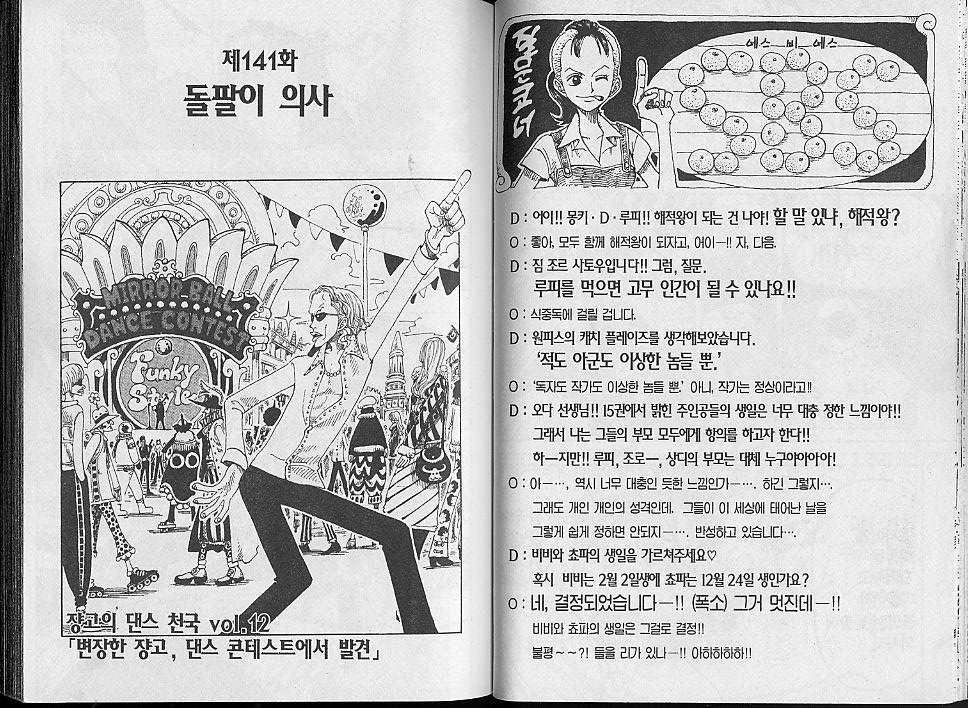 제141화
돌팔이 의사
MIRROR BALL
DANCE CONTEST
Funky
Style
쟝고의 댄스 천국 vol.12
「변장한 쟝고, 댄스 콘테스트에서 발견」
에스 비 에스
D : 어이!! 몽키·D·루피!! 해적왕이 되는 건 나야! 할 말 있냐, 해적왕?
O : 좋아, 모두 함께 해적왕이 되자고, 어이ー!! 자, 다음.
D : 짐 조르 사토우입니다!! 그럼, 질문.
루피를 먹으면 고무 인간이 될 수 있나요!!
O : 식중독에 걸릴 겁니다.
D : 원피스의 캐치 플레이즈를 생각해보았습니다.
‘적도 아군도 이상한 놈들 뿐.’
O : ‘독자도 작가도 이상한 놈들 뿐.’ 아니, 작가는 정상이라고!!
D : 오다 선생님!! 15권에서 밝힌 주인공들의 생일은 너무 대충 정한 느낌이야!!
그래서 나는 그들의 부모 모두에게 항의를 하고자 한다!!
하ー지만!! 루피, 조로ー, 상디의 부모는 대체 누구야아아아!
O : 아ー…, 역시 너무 대충인 듯한 느낌인가ー…. 하긴 그렇지….
그래도 개인 개인의 성격인데, 그들이 이 세상에 태어난 날을
그렇게 쉽게 정하면 안되지ー…. 반성하고 있습니다….
D : 비비와 쵸파의 생일을 가르쳐주세요♡
혹시 비비는 2월 2일생에 쵸파는 12월 24일 생인가요?
O : 네, 결정되었습니다ー!! (폭소) 그거 멋진데ー!!
비비와 쵸파의 생일은 그걸로 결정!!
불평~~?! 들을 리가 있나ー!! 아하하하하!!